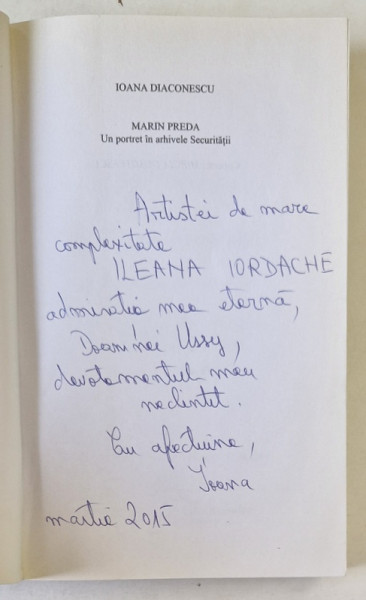 IOANA DIACONESCU
MARIN PREDA
Un portret în arhivele Securității
Artistei de mare
complexitate
ILEANA IORDACHE
admirația mea eternă,
Doamnei Ussy,
devotamentul meu
neclintit.
Cu afecțiune,
Ioana
martie 2015